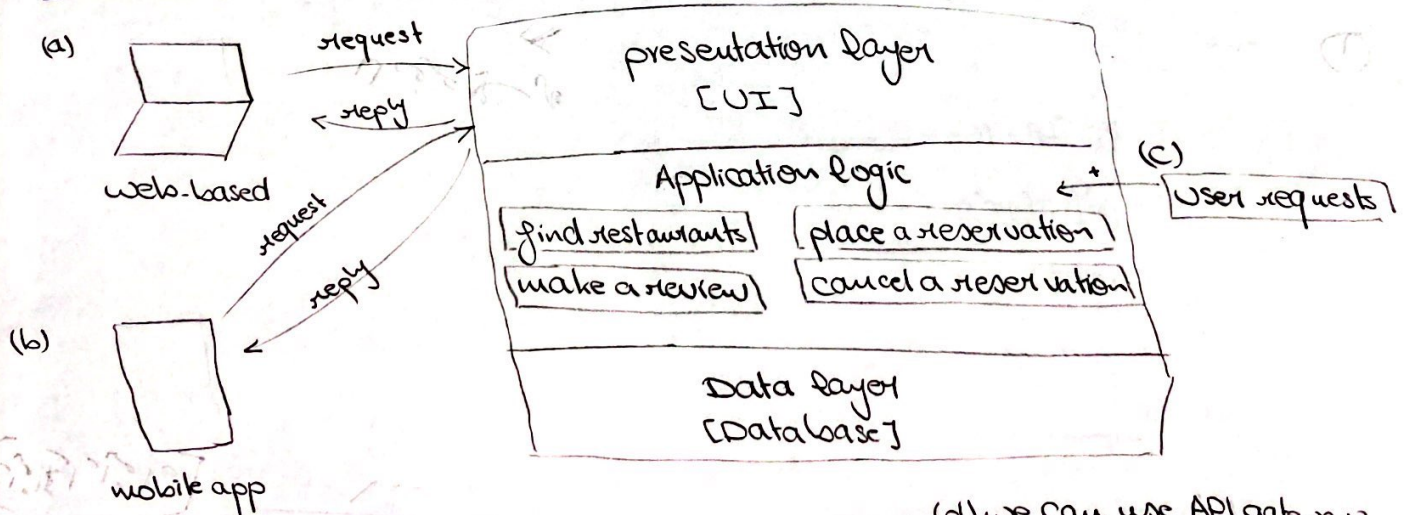 (a)
request
reply
web-based
request
reply
(b)
mobile app
presentation layer
[UI]
Application logic
find restaurants
place a reservation
make a review
cancel a reservation
Data layer
[Database]
(c)
User requests
(d) we can use API